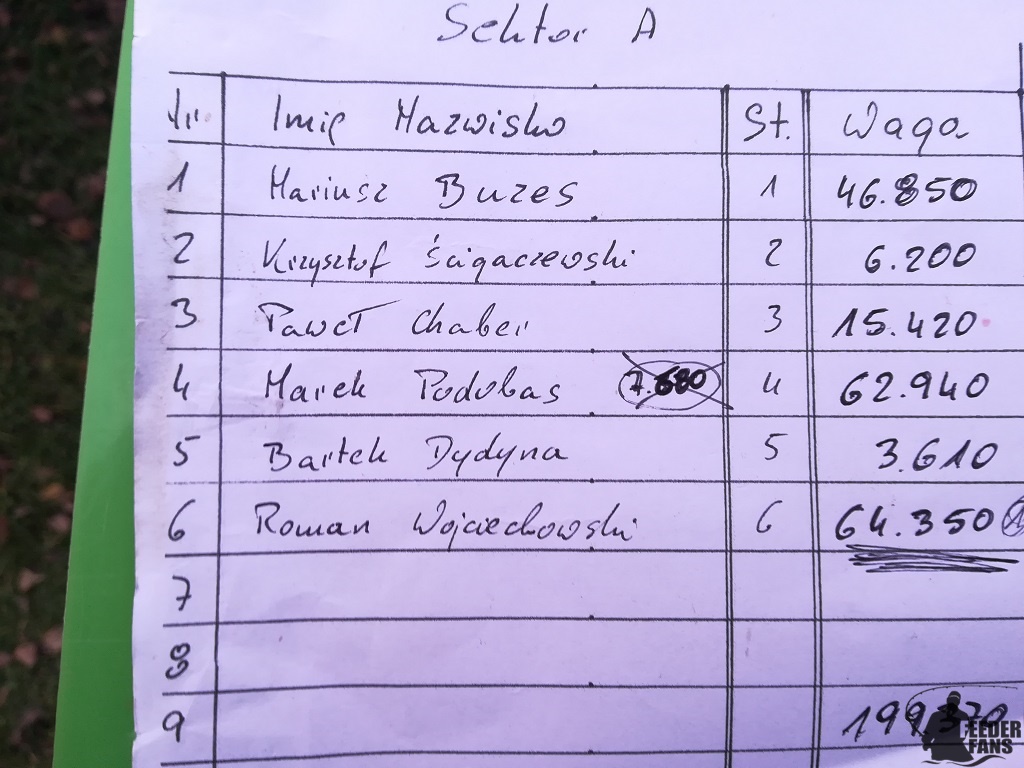 Sektor A
Nr. Imię Nazwisko St. Waga
1 Mariusz Buzes 1 46.850
2 Krzysztof Ścigaczewski 2 6.200
3 Paweł Chaber 3 15.420
4 Marek Podubas 7.680 4 62.940
5 Bartek Dydyna 5 3.610
6 Roman Wojciechowski 6 64.350
7
8
9 199.370
FEEDER
FANS